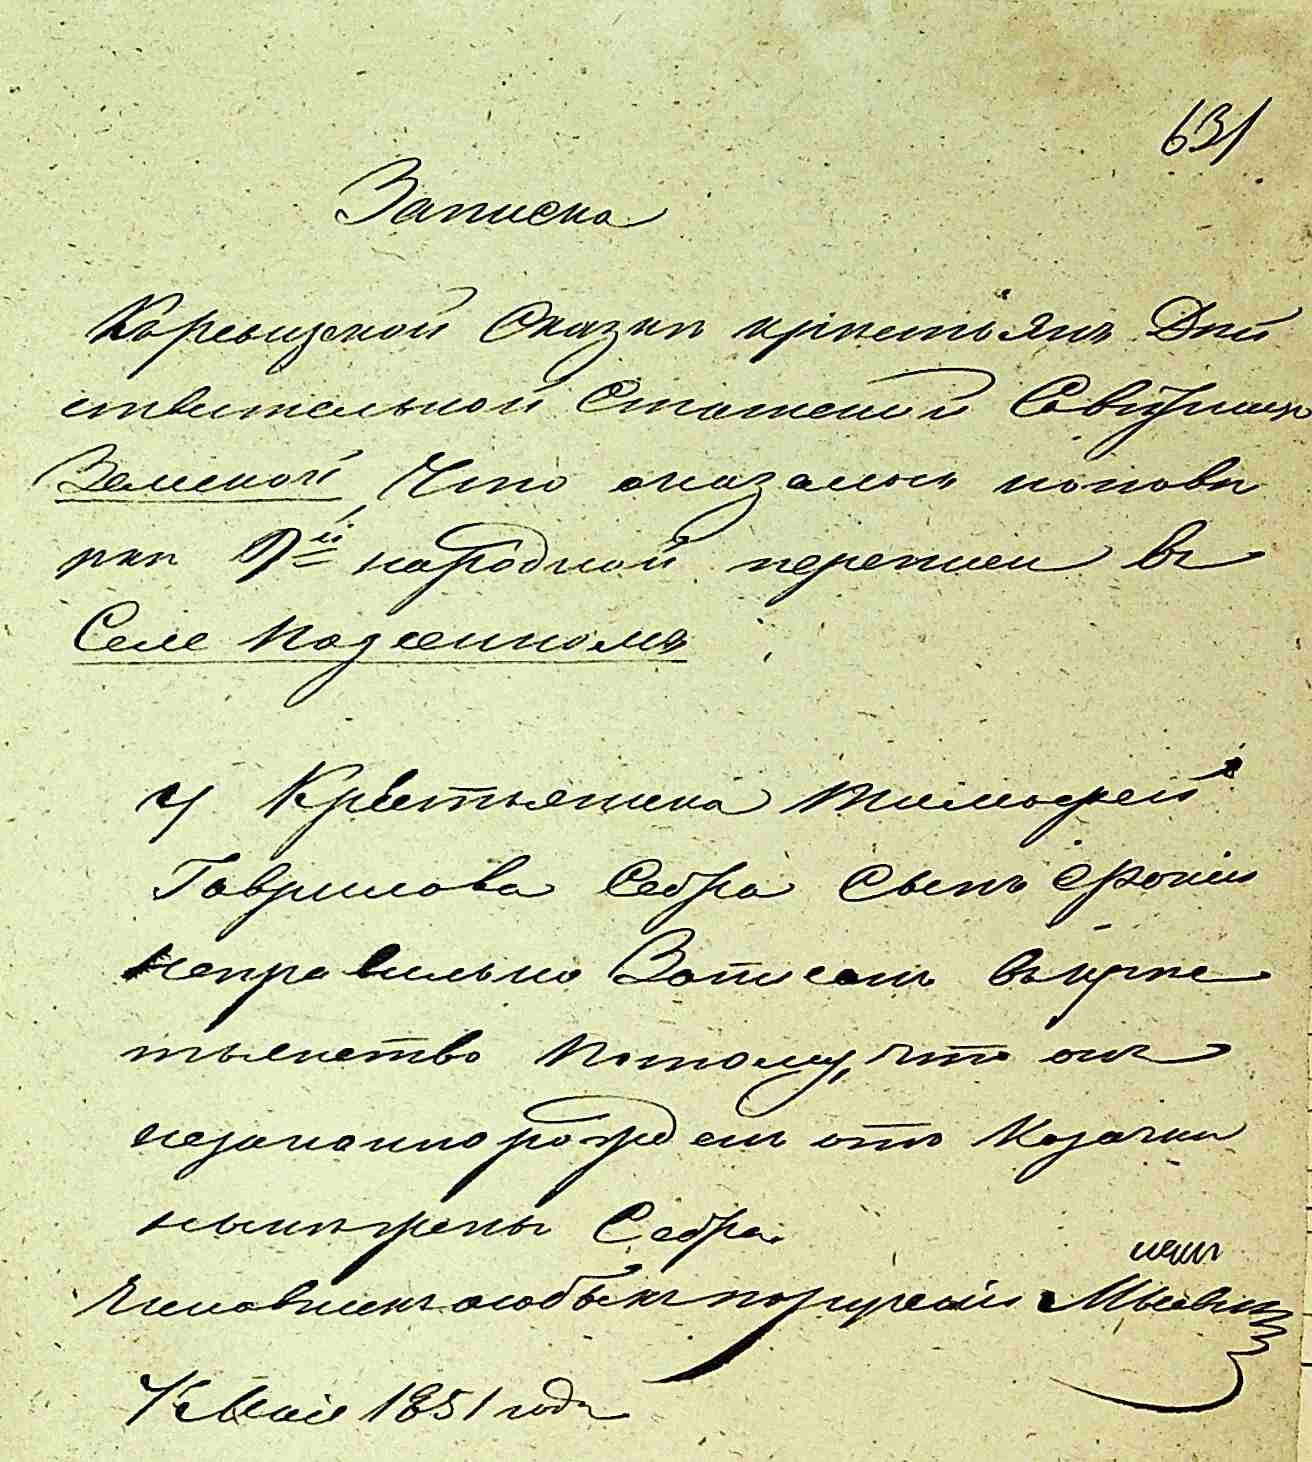 631
Записка
Къ ревизской Сказки крестьянъ Дѣй
ствительной Статской Совѣтницы
Зелинской, Что оказалось по повѣ
ркѣ 9й народной переписи въ
Селе
У Крестьянина Тимофей
Гаврилова Себра Сынъ Ефимъ
неправильно Записанъ въ кре
стьянство Потому, что онъ
незаконнорожденъ отъ Козачки
нынѣ жены Себра.
Чиновникъ особыхъ порученій
Мая 1851 года